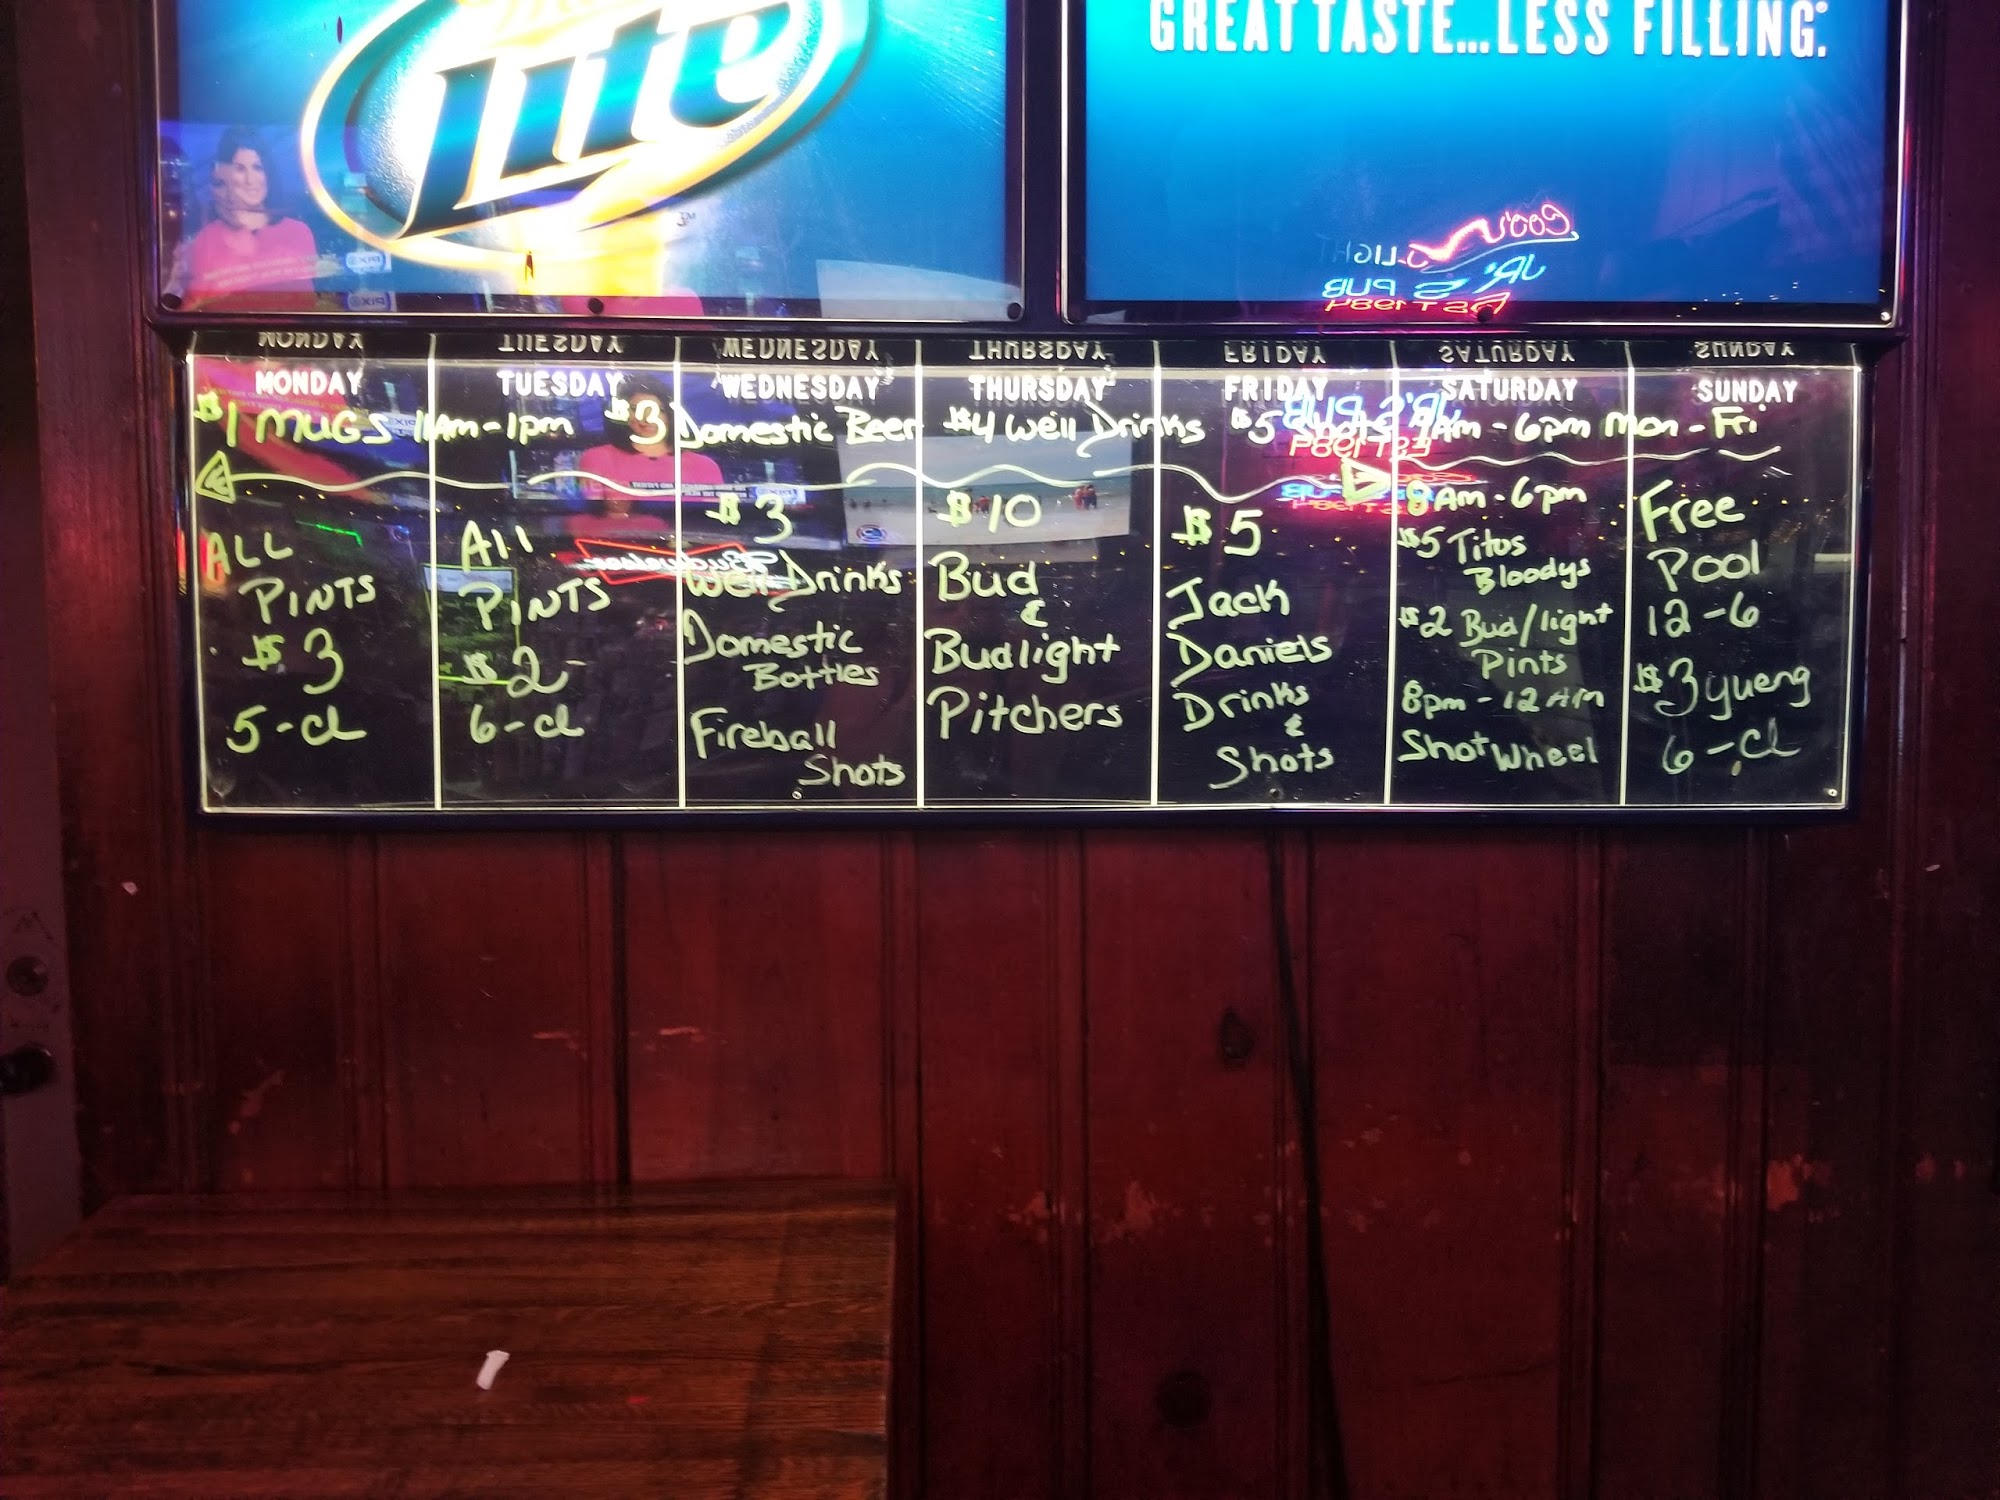 Lite
GREAT TASTE...LESS FILLING.
MONDAY TUESDAY WEDNESDAY THURSDAY FRIDAY SATURDAY SUNDAY
$1 MUGS 11Am-1pm $3 Domestic Beer $4 Well Drinks $5 Shots 9Am-6pm Mon-Fri
ALL
PINTS
$3
5-cl
All
PINTS
$2
6-cl
$3
Well Drinks
Domestic
Bottles
Fireball
Shots
$10
Bud
&
Budlight
Pitchers
$5
Jack
Daniels
Drinks
&
Shots
8Am-6pm
$5 Titos
Bloodys
$2 Bud/light
Pints
8pm-12AM
Shot Wheel
Free
Pool
12-6
$3 yueng
6-cl